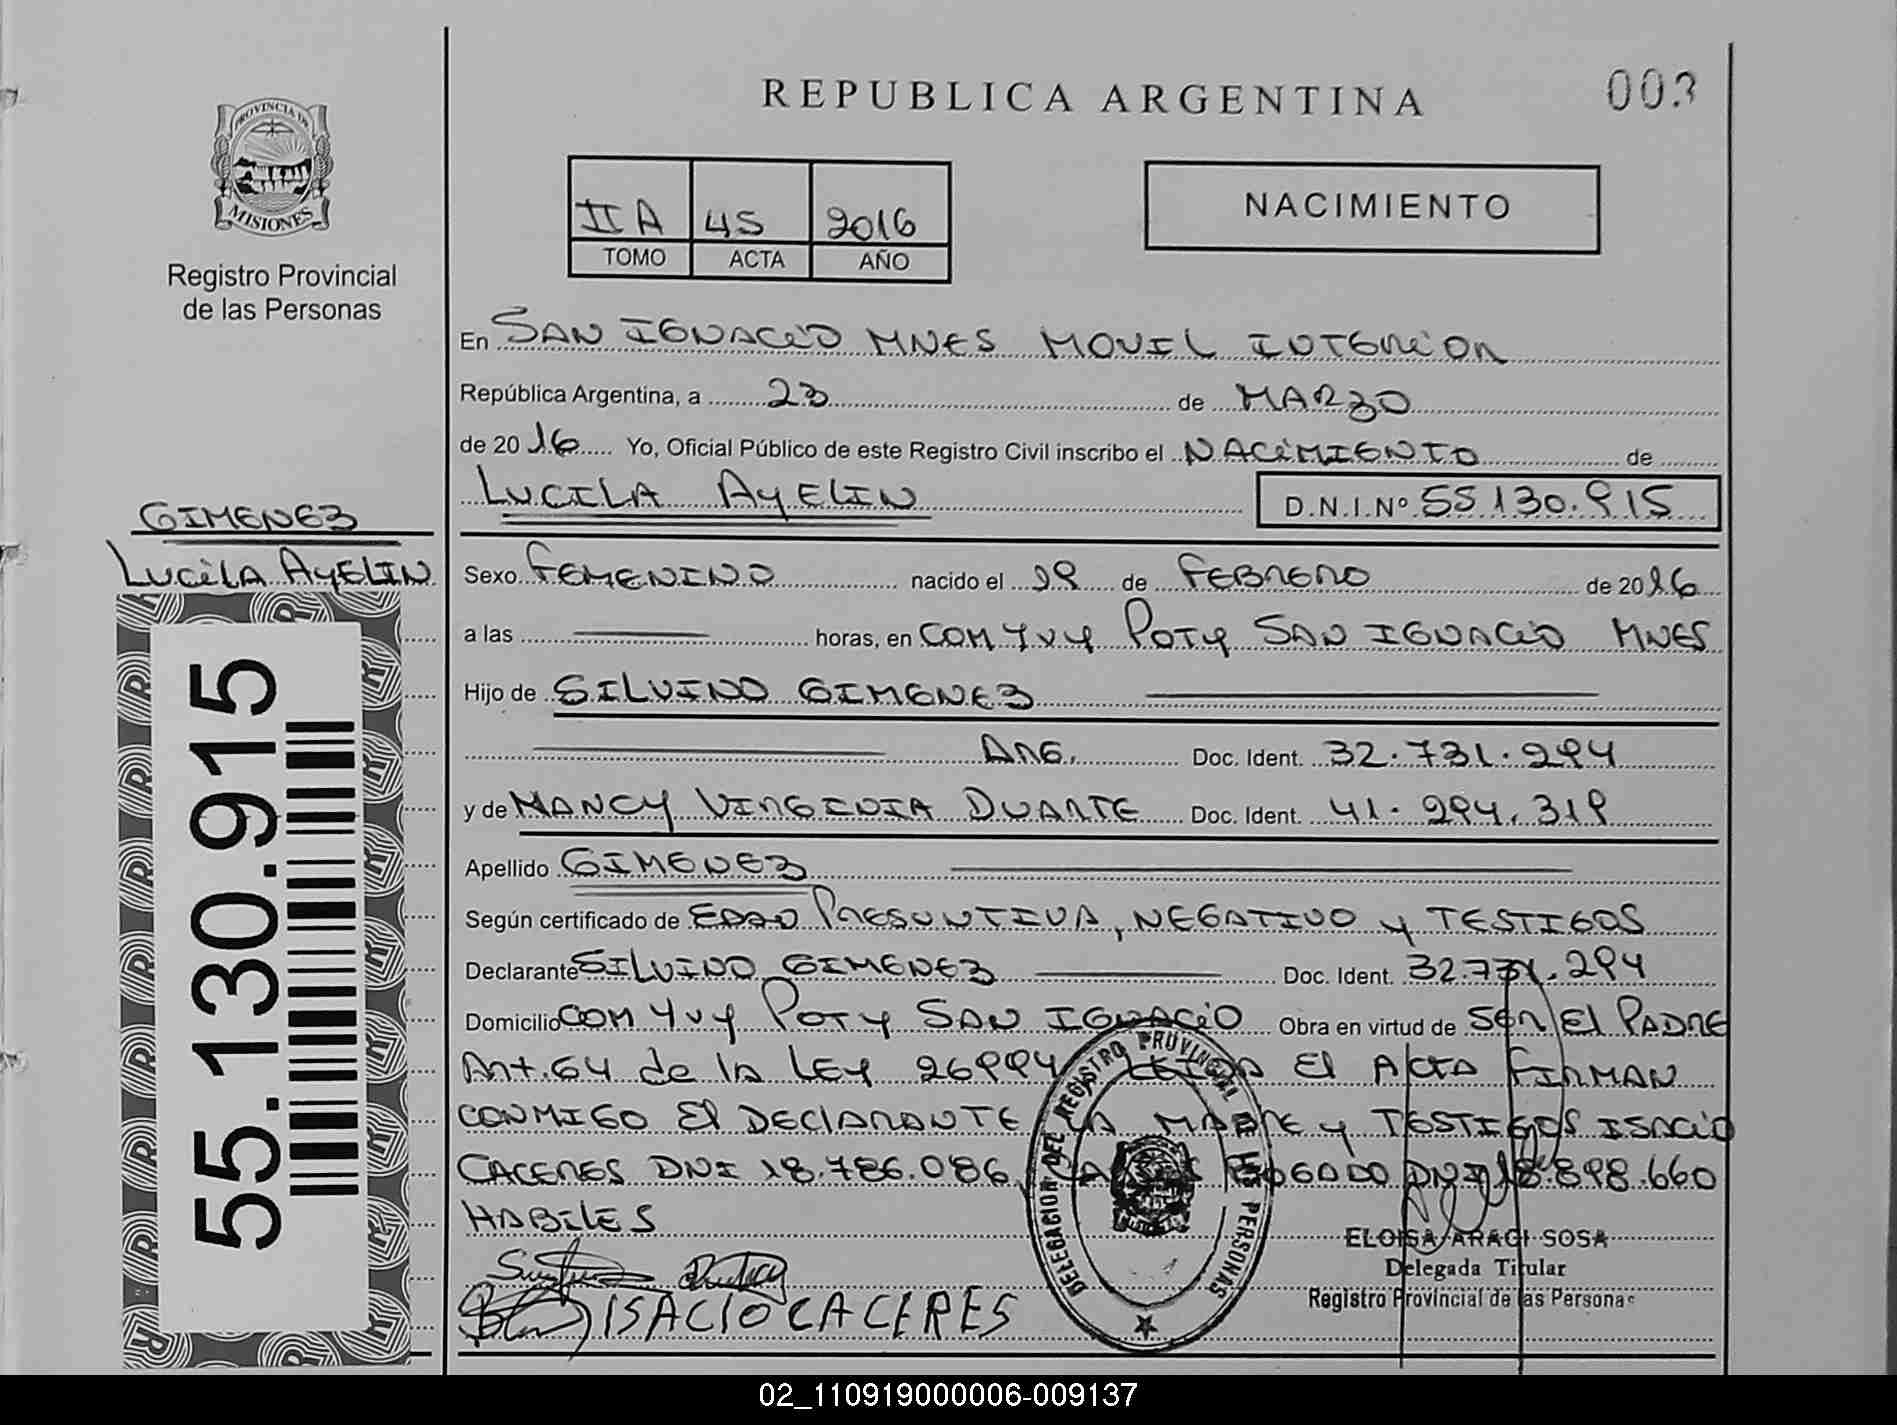 REPUBLICA ARGENTINA
003
PROVINCIA DE
MISIONES
Registro Provincial
de las Personas
IIA 45 2016
TOMO ACTA AÑO
NACIMIENTO
En SAN IGNACIO MNES MOVIL INTERIOR
República Argentina, a 23 de MARZO
de 2016 Yo, Oficial Público de este Registro Civil inscribo el NACIMIENTO de
LUCILA AYELIN D.N.I.Nº 55.130.915
GIMENEZ
LUCILA AYELIN
55.130.915
Sexo FEMENINO nacido el 19 de FEBRERO de 2016
a las horas, en COM YVY POTY SAN IGNACIO MNES
Hijo de SILVINO GIMENEZ
ARG. Doc. Ident. 32.731.294
y de MANCY VIRGINIA DUARTE Doc. Ident. 41.294.319
Apellido GIMENEZ
Según certificado de EDAD PRESUNTIVA, NEGATIVO y TESTIGOS
Declarante SILVINO GIMENEZ Doc. Ident. 32.731.294
Domicilio COM YVY POTY SAN IGNACIO Obra en virtud de SER El PADRE
Art. 64 de la LEY 26994 LEIDA El ACTA FIRMAN
CONMIGO El DEClARANTE LA MADRE y TESTIGOS ISACIO
CACERES DNI 18.786.086, DNI 18.898.660
HABILES
ISACIO CACERES
DELEGACION DEL REGISTRO PROVINCIAL DE LAS PERSONAS
ELOISA ARAGI SOSA
Delegada Titular
Registro Provincial de las Personas
02_110919000006-009137